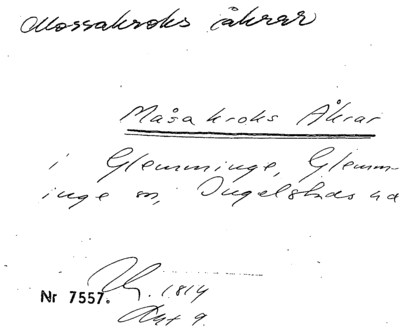 Mossakroks åkrar
Måsakroks Åkrar
i Glemminge, Glemm-
inge sn, Ingelstads hd
1814
Nr 7557.
Akt 9.